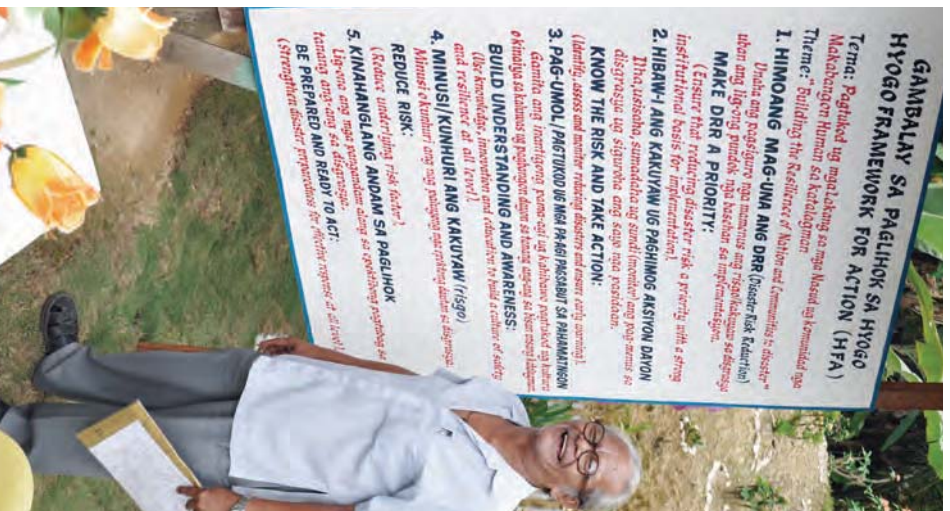 GAMBALAY SA PAGLIHOK SA HYOGO
HYOGO FRAMEWORK FOR ACTION (HFA)
Tema: Pagtukod ug mga Lakang sa mga Nasud ug komunidad nga
Makabangon Human sa katalagman
Theme: "Building the Resilience of Nation and Communities to disaster"
1. HIMOANG MAG-UNA ANG DRR (Disaster Risk Reduction)
Unaha ang pasiguro nga mamenus ang risgo/kakuyaw sa disgrasya
uban ang lig-ong pundok nga basehan sa implementasyon.
MAKE DRR A PRIORITY:
(Ensure that reducing disaster risk a priority with a strong
institutional basis for implementation).
2. HIBAW-I ANG KAKUYAW UG PAGHIMOG AKSIYON DAYON
Ilha, usisaha, sumadaha ug sundi (monitor) ang pag-menus sa
disgrasya ug siguroha ang sayo nga pasidaan.
KNOW THE RISK AND TAKE ACTION:
(Identify, assess and monitor reducing disasters and ensure early warning).
3. PAG-UMOL/PAGTUKOD UG MGA PAAGI PAGSABUT SA PAHAMATNGON
Gamita ang inantigong pama-agi ug kahibawo pagtukod ug kultura
o kinaiya sa kaluwas ug pagbangon dayon sa tanang ang-ang sa
BUILD UNDERSTANDING AND AWARENESS:
(Use knowledge, innovation and education to build a culture of safety
and resilience at all level).
4. MINUSI/KUNHURI ANG KAKUYAW (risgo)
Minusi o kunhuri ang nag pahiping nga epektong dautan sa disgrasya.
REDUCE RISK:
(Reduce underlying risk factor).
5. KINAHANGLANG ANDAM SA PAGLIHOK
Lig-ona ang mga pangandam alang sa epektibong pagtubag sa
tanang ang-ang sa disgrasya.
BE PREPARED AND READY TO ACT:
(Strengthen disaster preparedness for effective response at all level)